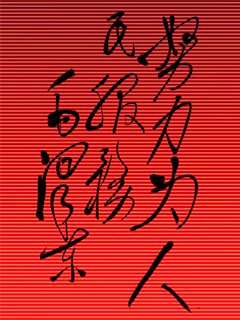 努力为人
民服务
毛泽东